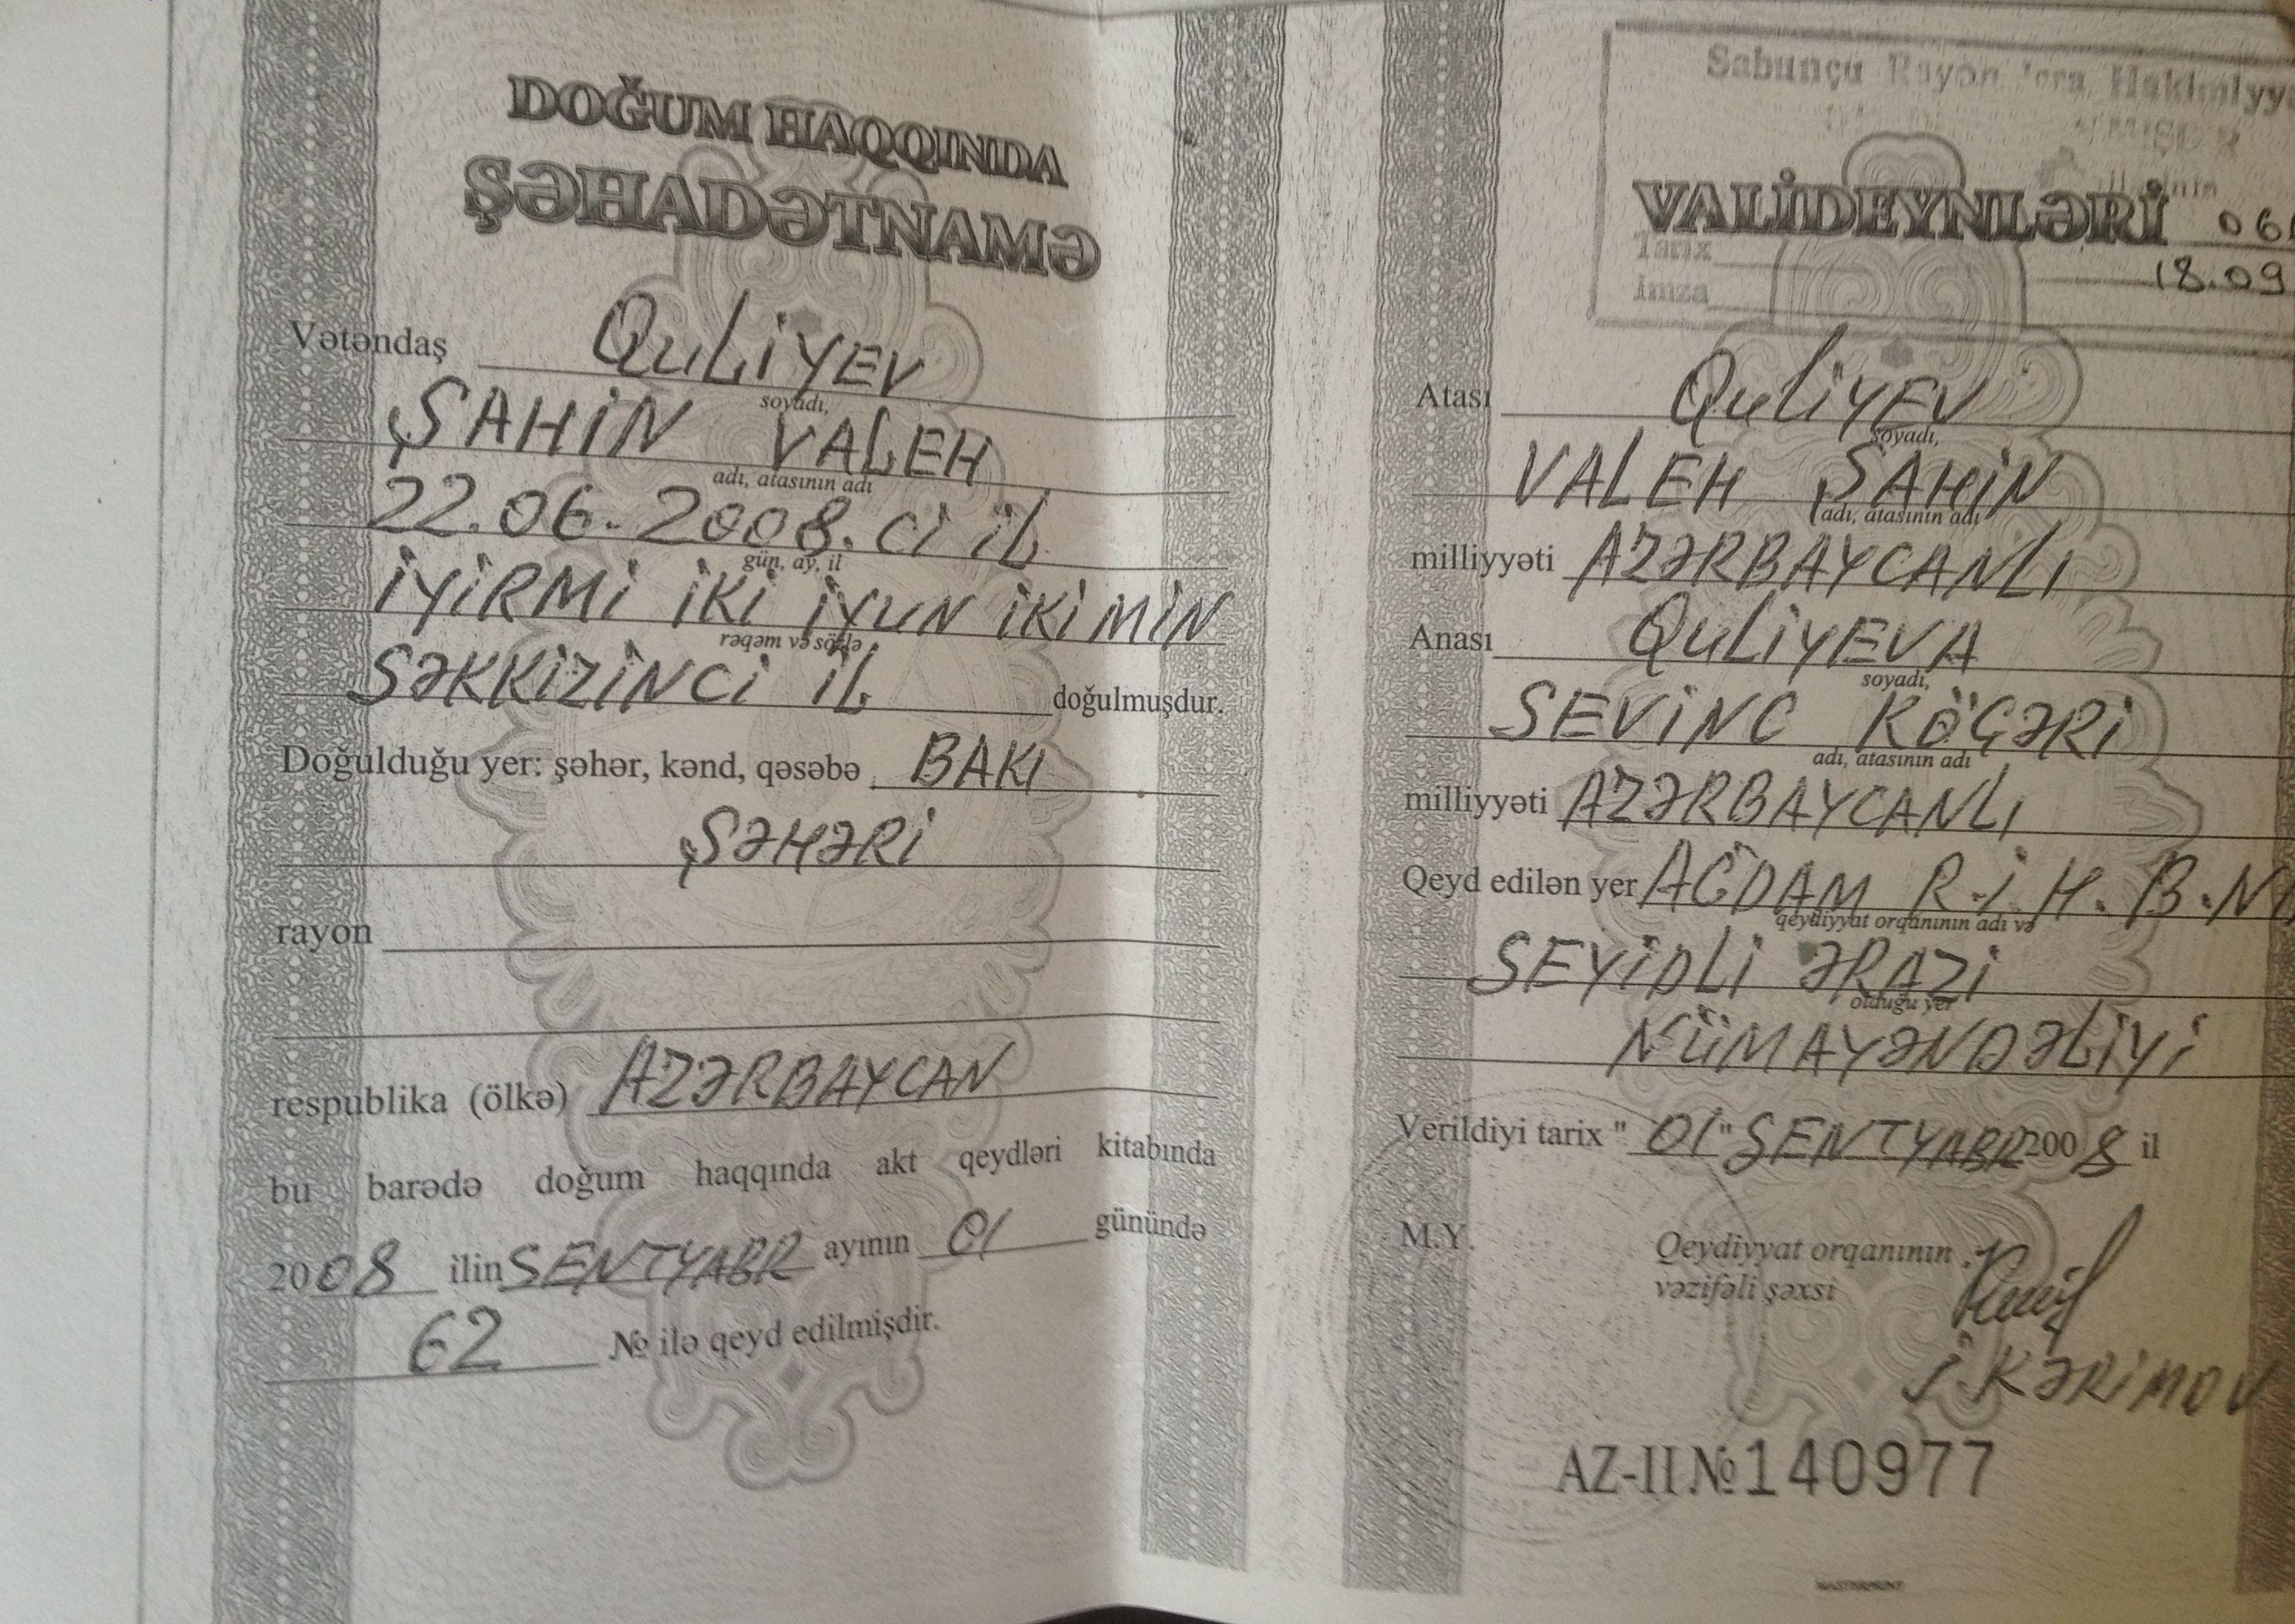 DOĞUM HAQQINDA
ŞƏHADƏTNAMƏ
Vətəndaş QULİYEV
soyadı,
ŞAHİN VALEH
adı, atasının adı
22.06.2008.Cİ İL
gün, ay, il
İYİRMİ İKİ İYUN İKİ MİN
rəqəm və sözlə
SƏKKİZİNCİ İL doğulmuşdur.
Doğulduğu yer: şəhər, kənd, qəsəbə BAKI
ŞƏHƏRİ
rayon
respublika (ölkə) AZƏRBAYCAN
bu barədə doğum haqqında akt qeydləri kitabında
2008 ilin SENTYABR ayının 01 günündə
62 № ilə qeyd edilmişdir.
Sabunçu Rayon İcra Hakimiyy
VALİDEYNLƏRİ 06
Tarix 18.09
İmza
Atası QULİYEV
soyadı,
VALEH ŞAHİN
adı, atasının adı
milliyyəti AZƏRBAYCANLI
Anası QULİYEVA
soyadı,
SEVİNC KÖÇƏRİ
adı, atasının adı
milliyyəti AZƏRBAYCANLI
Qeyd edilən yer AĞDAM R.İ.H.B.N
qeydiyyat orqanının adı və
SEYİDLİ ƏRAZİ
olduğu yer
NÜMAYƏNDƏLİYİ
Verildiyi tarix "01" SENTYABR 2008 il
M.Y.
Qeydiyyat orqanının
vəzifəli şəxsi
İ.KƏRİMOV
AZ-II № 140977